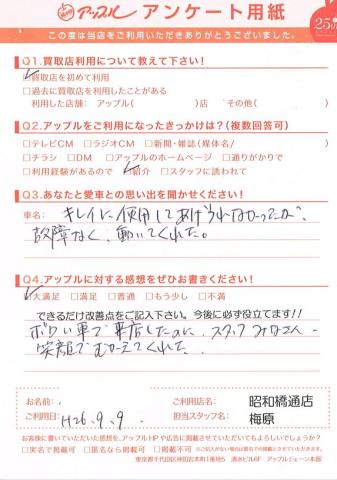 アップル アンケート用紙
25
この度は当店をご利用いただきありがとうございました。
Q1.買取店利用について教えて下さい!
□買取を初めて利用
□過去に買取店を利用したことがある
利用した店舗: アップル( )店 その他( )
Q2.アップルをご利用になったきっかけは?(複数回答可)
□テレビCM □ラジオCM □新聞・雑誌(媒体名/ )
□チラシ □DM □アップルのホームページ □通りがかりで
□利用経験があるので □紹介 □スタッフに誘われて
Q3.あなたと愛車との思い出を聞かせください!
車名: キレイに使用してあげられなかったが、
故障なく、動いてくれた。
Q4.アップルに対する感想をぜひお書きください!
□大満足 □満足 □普通 □もう少し □不満
できるだけ改善点をご記入下さい。今後に必ず役立てます!!
ボロい車で来店したのに、スタッフみなさん
笑顔でむかえてくれた。
お名前:
ご利用日: H26.9.9.
ご利用店名: 昭和橋通店
担当スタッフ名: 梅原
お客様に書いていただいた感想を、アップルHPや広告に掲載させていただいてもよろしいでしょうか?
□実名で掲載可 □匿名なら掲載可 □掲載不可
東京都千代田区神田岩本町1番地5 清水ビル6F アップルチェーン本部